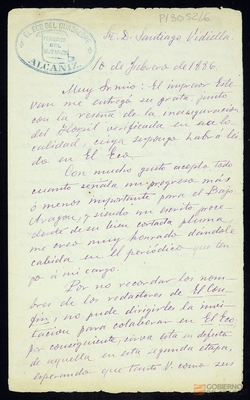 P/1305216
EL ECO DEL GUADALOPE
ALCAÑIZ.
Sr. D. Santiago Vidiella.
16 de Febrero de 1886.
Muy Sr. mio: El impresor
me entregó su grata junto
con la reseña de la inauguración
del Hospital verificada en esa lo
calidad, cuya
do en El Eco.
Con mucho gusto acepto todo
cuanto señala un progreso más
ó menos importante para el Bajo
Aragon, y siendo su escrito proce
dente de su bien cortada pluma
me creo muy honrado dándole
cabida en el periódico que ten
go á mi cargo.
Por no recordar los nom
bres de los redactores de El
no pude dirigirles la invi
tacion para colaborar en El Eco,
por consiguiente, sirva esta su defecto
de aquella en esta segunda etapa,
esperando que tanto V. como sus
GOBIERNO